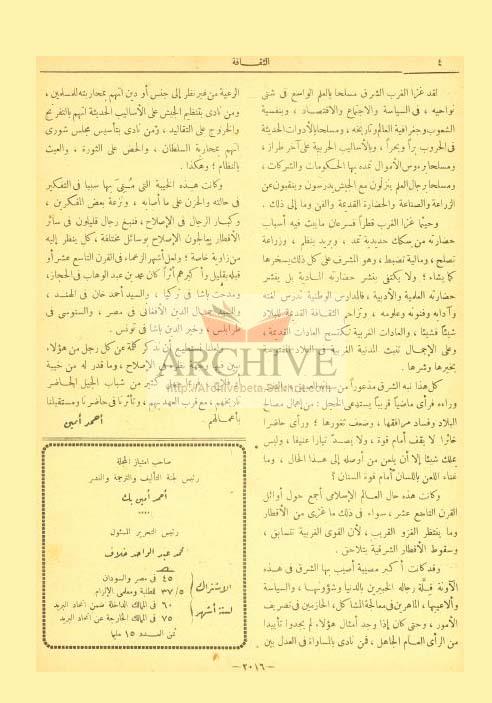 ٤
الثقافة
لقد غزا الغرب الشرق مسلحا بالعلم الواسع فى شتى
نواحيه ، فى السياسة والاجتماع والاقتصاد ، وبنفسية
الشعوب وجغرافية العالم وتاريخه ، ومسلحا بالأدوات الحديثة
فى الحروب براً وبحراً ، وبالأساليب الحربية على آخر طراز ،
ومسلحا برءوس الأموال تمده بها الحكومات والشركات ،
ومسلحا برجال العلم ينزلون مع الجيش يدرسون وينقبون عن
الزراعة والصناعة والحضارة القديمة والفن وما إلى ذلك .
وحيثما غزا الغرب قطراً فسرعان ما يبث فيه أسباب
حضارته من سكك حديدية تمد ، وبريد ينظم ، وزراعة
تصلح ، ومالية تضبط ، وهو المشرف على كل ذلك يسخرها
كما يشاء ؛ ولا يكتفى بنشر حضارته المادية بل ينشر
حضارته العلمية والأدبية ، فالمدارس الوطنية تدرس لغته
وآدابه وفنونه وعلومه ، وتزاحم الثقافة القديمة للبلاد
شيئاً فشيئا ، والعادات الغربية تكتسح العادات القديمة ،
وعلى الإجمال تبث المدنية الغربية فى البلاد المفتوحة
بخيرها وشرها .
كل هذا نبه الشرق مذعوراً من
وراءه فرأى ماضياً قريباً يستدعى الخجل : من إهمال مصالح
البلاد وفساد مرافقها ، وضعف ثغورها ؛ ورأى حاضرا
خائرا لا يقف أمام قوة ، ولا يصد تيارا عنيفا ، وليس
يملك شيئا إلا أن يلعن من أوصله إلى هذا الحال ، وما
غناء اللعن باللسان أمام قوة السنان ؟
وكانت هذه حال العالم الإسلامى أجمع حول أوائل
القرن التاسع عشر ، سواء فى ذلك ما غزى من الأقطار
وما ينتظر الغزو القريب ، لأن القوى الغربية تتسابق ،
وسقوط الأقطار الشرقية يتلاحق .
وقد كانت أكبر مصيبة أصيب بها الشرق فى هذه
الآونة قلة رجاله الخبيرين بالدنيا وشؤونها ، والسياسة
وألاعيبها ، الماهرين فى معالجة المشاكل ، الحازمين فى تصريف
الأمور ، وحتى كان إذا وجد أمثال هؤلاء لم يجدوا تأييدا
من الرأى العام الجاهل ، فمن نادى بالمساواة فى العدل بين
الرعية من غير نظر إلى جنس أو دين اتهم بمحاربته للمسلمين ،
ومن نادى بتنظيم الجيش على الأساليب الحديثة اتهم بالتفرنج
والخروج على التقاليد ، ومن نادى بتأسيس مجلس شورى
اتهم بمحاربة السلطان ، والحض على الثورة ، والعبث
بالنظام ؛ وهكذا .
وكانت هذه الخيبة التى منى بها سببا فى التفكير
فى حالته والحزن على ما أصابه ، ونزعة بعض المفكرين ،
وكبار الرجال فى الإصلاح ، فنبغ رجال قليلون فى سائر
الأقطار يعالجون الإصلاح بوسائل مختلفة ، كل ينظر إليه
من زاوية خاصة ؛ ولعل أشهر الزعماء فى القرن التاسع عشر أو
قبله بقليل وأكبرهم أثراً كان محمد بن عبد الوهاب فى الحجاز ،
ومدحت باشا فى تركيا ، والسيد أحمد خان فى الهند ،
والسيد جمال الدين الأفغانى فى مصر ، والسنوسى فى
طرابلس ، وخير الدين باشا فى تونس .
ولعلنا نستطيع أن نذكر كلمة عن كل رجل من هؤلاء
نبين فيها وجهة نظره فى الإصلاح ، وما قدر له من خيبة
كثير من شباب الجيل الحاضر
تاريخهم ، مع قرب العهد بهم ، وتأثرنا فى حاضرنا ومستقبلنا
بأعمالهم .
أحمد أمين
ARCHIVE
http://Archivebeta.Sakhrit.com
صاحب امتياز المجلة
رئيس لجنة التأليف والترجمة والنشر
أحمد أمين بك
رئيس التحرير المسئول
محمد عبد الواحد خلاف
الاشتراك
لستة أشهر
٤٥ فى مصر والسودان
٣٧/٥ للطلبة ومعلمى الإلزام
٦٠ فى الممالك الداخلة ضمن اتحاد البريد
٧٥ فى الممالك الخارجة عن اتحاد البريد
ثمن العدد ١٥ مليما
— ٢٠١٦ —